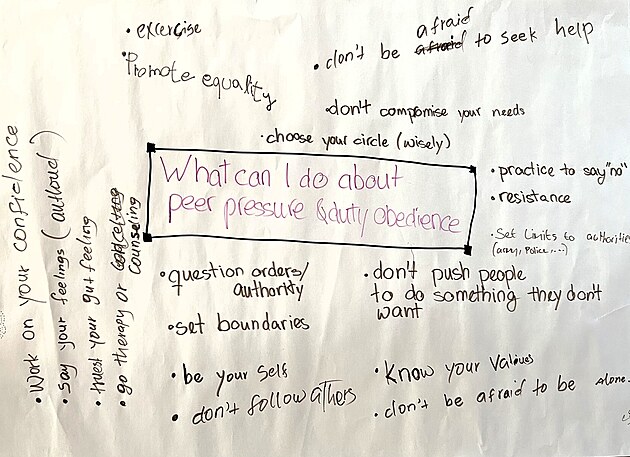 • exercise
Promote equality
afraid
• don't be afraid to seek help
• don't compomise your needs
• choose your circle (wisely)
What can I do about
peer pressure & duty obedience
• practice to say "no"
• resistance
• Set Limits to authorities
(army, Police ...)
• question orders/
authority
• set boundaries
• don't push people
to do something they don't
want
• be your self
• don't follow athers
• Know your Values
• don't be afraid to be alone.
• Work on your confidence
• Say your feelings (autloud)
• trust your gut feeling
• go therapy or
counseling